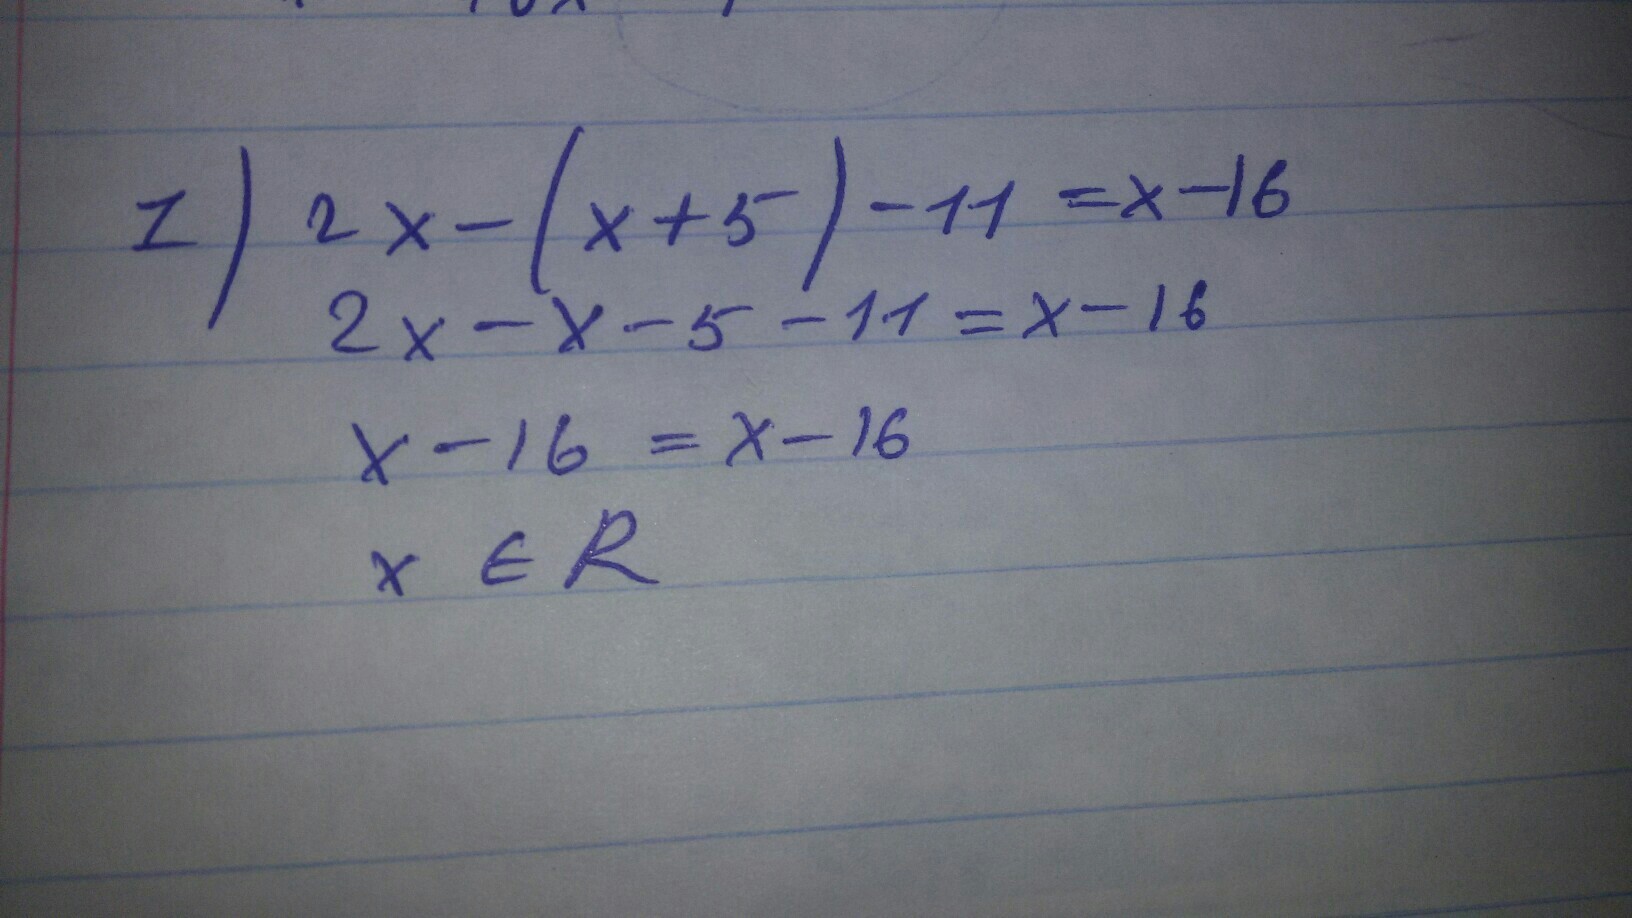 1) 2x-(x+5)-11=x-16
2x-x-5-11=x-16
x-16=x-16
x∈R